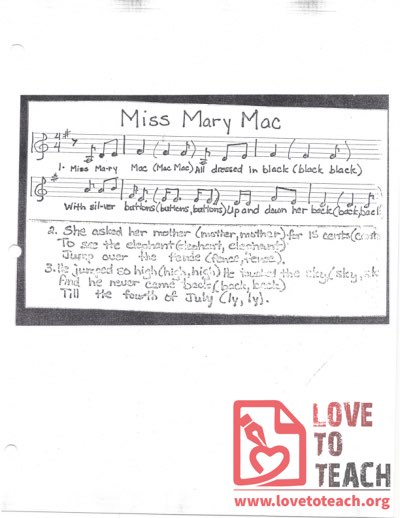 Miss Mary Mac
4 4
1. Miss Ma-ry Mac (Mac Mac) All dressed in black (black black)
With sil-ver buttons (buttons, buttons) Up and down her back (back, back
2. She asked her mother (mother, mother) for 15 cents (cents
To see the elephant (elephant, elephant)
Jump over the fence (fence, fence).
3. He jumped so high (high, high) He touched the sky, (sky, sk
And he never came back, (back, back)
Till the fourth of July (ly, ly).
LOVE
TO
TEACH
www.lovetoteach.org